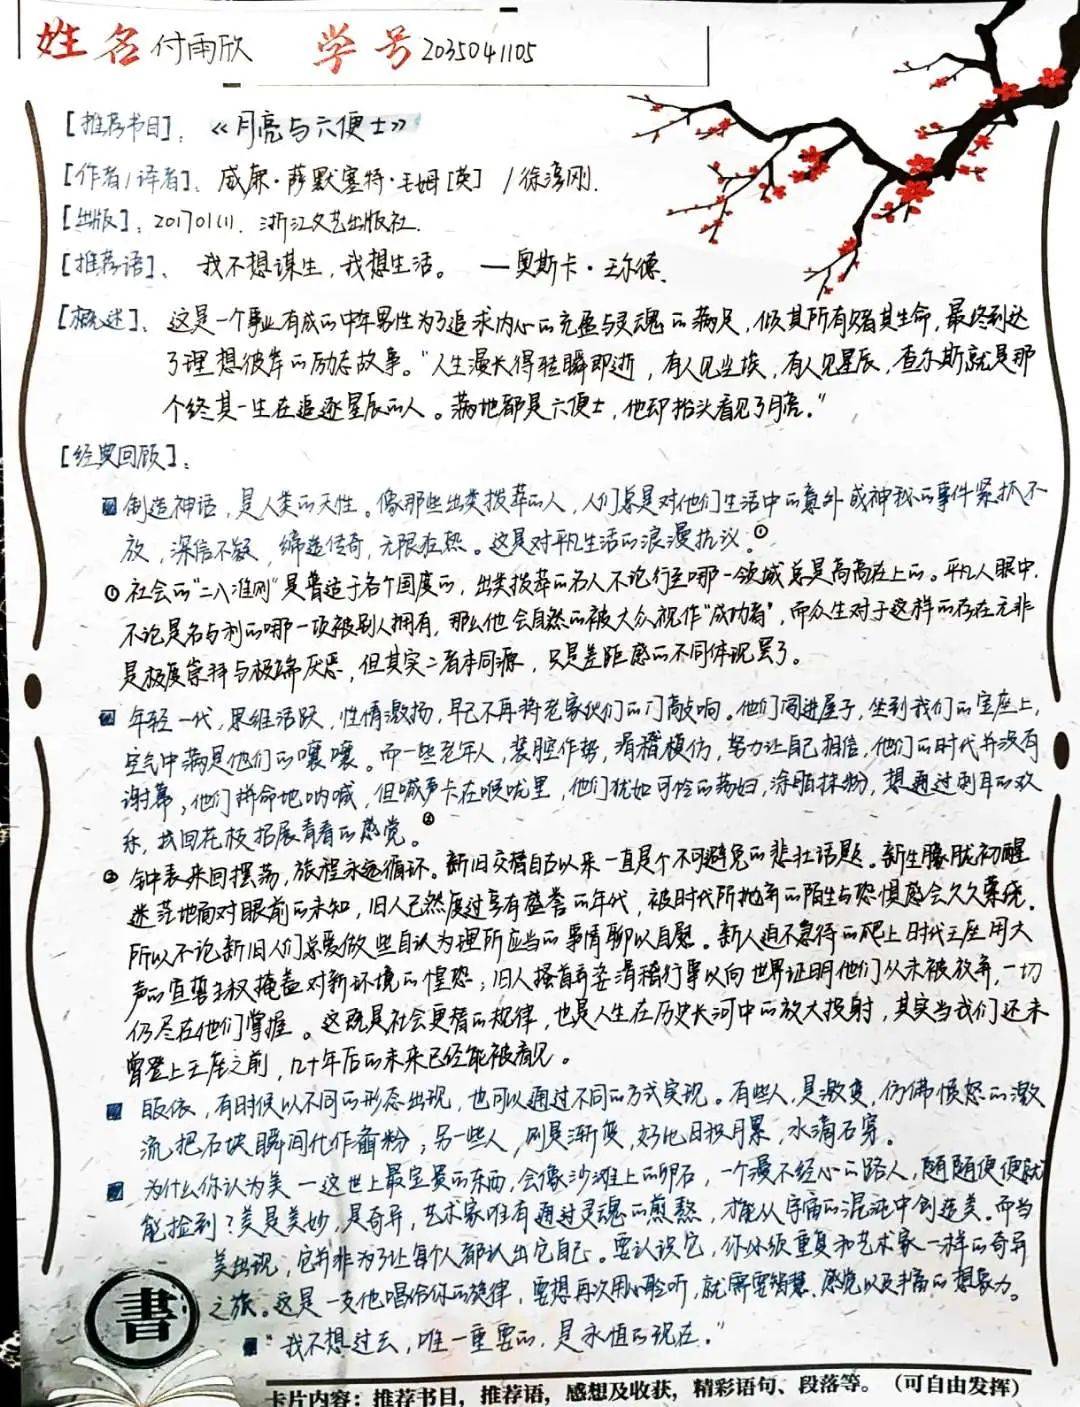 姓名 付雨欣 学号 2035041105
[推荐书目]：《月亮与六便士》
[作者/译者]：威廉·萨默塞特·毛姆[英] /徐淳刚.
[出版]：20170111. 浙江文艺出版社.
[推荐语]、 我不想谋生，我想生活。 —奥斯卡·王尔德.
[概述]、这是一个事业有成的中年男性为了追求内心的充盈与灵魂的满足，倾其所有赌其生命，最终到达
了理想彼岸的励志故事。"人生漫长得转瞬即逝，有人见尘埃，有人见星辰，查尔斯就是那
个终其一生在追逐星辰的人。满地都是六便士，他却抬头看见了月亮。"
[经典回顾]：
制造神话，是人类的天性。像那些出类拔萃的人，人们总是对他们生活中的意外或神秘的事件紧抓不
放，深信不疑，缔造传奇，无限狂热。这是对平凡生活的浪漫抗议。①
①社会的"二八准则"是普适于各个国度的，出类拔萃的名人不论行至哪一领域总是高高在上的。平凡人眼中，
不论是名与利的哪一项被别人拥有，那么他会自然的被大众视作"成功者"，而众生对于这样的存在无非
是极度崇拜与极端厌恶，但其实二者本同源，只是差距感的不同体现罢了。
年轻一代，思维活跃，性情激扬，早已不再将老家伙们的门敲响。他们闯进屋子，坐到我们的宝座上，
空气中满是他们的嚷嚷。而一些老年人，装腔作势，滑稽模仿，努力让自己相信，他们的时代并没有
谢幕；他们拼命地呐喊，但喊声卡在喉咙里，他们犹如可怜的荡妇，涂脂抹粉，想通过刺耳的欢
乐，找回花枝招展青春的感觉。②
②钟表来回摆荡，旅程永远循环。新旧交替自古以来一直是个不可避免的悲壮话题。新生朦胧初醒
迷茫地面对眼前的未知，旧人已然度过享有盛誉的年代，被时代所抛弃的陌生与恐惧感会久久萦绕。
所以不论新旧人们总爱做些自认为理所应当的事情聊以自慰。新人迫不急待的爬上时代王座用大
声的宣誓主权掩盖对新环境的惶恐；旧人搔首弄姿滑稽行事以向世界证明他们从未被放弃，一切
仍尽在他们掌握。这既是社会更替的规律，也是人生在历史长河中的放大投射，其实当我们还未
曾登上王座之前，几十年后的未来已经能被看见。
皈依，有时候以不同的形态出现，也可以通过不同的方式实现。有些人，是激变，仿佛愤怒的激
流把石块瞬间化作齑粉；另一些人，则是渐变，好比日积月累，水滴石穿。
为什么你认为美—这世上最宝贵的东西，会像沙滩上的卵石，一个漫不经心的路人，随随便便就
能捡到？美是美妙，是奇异，艺术家唯有通过灵魂的煎熬，才能从宇宙的混沌中创造美。而当
美出现，它并非为了让每个人都认出它自己。要认识它，你必须重复和艺术家一样的奇异
之旅。这是一支他唱给你的旋律，要想再次用心聆听，就需要智慧、感觉以及丰富的想象力。
"我不想过去，唯一重要的，是永恒的现在。"
書
卡片内容：推荐书目，推荐语，感想及收获，精彩语句、段落等。（可自由发挥）